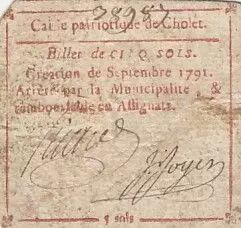 28987
Caisse patriotique de Cholet.
Billet de CINQ SOLS.
Création de Septembre 1791.
Arrêté par la Municipalité, &
remboursable en Assignats.
5 sols